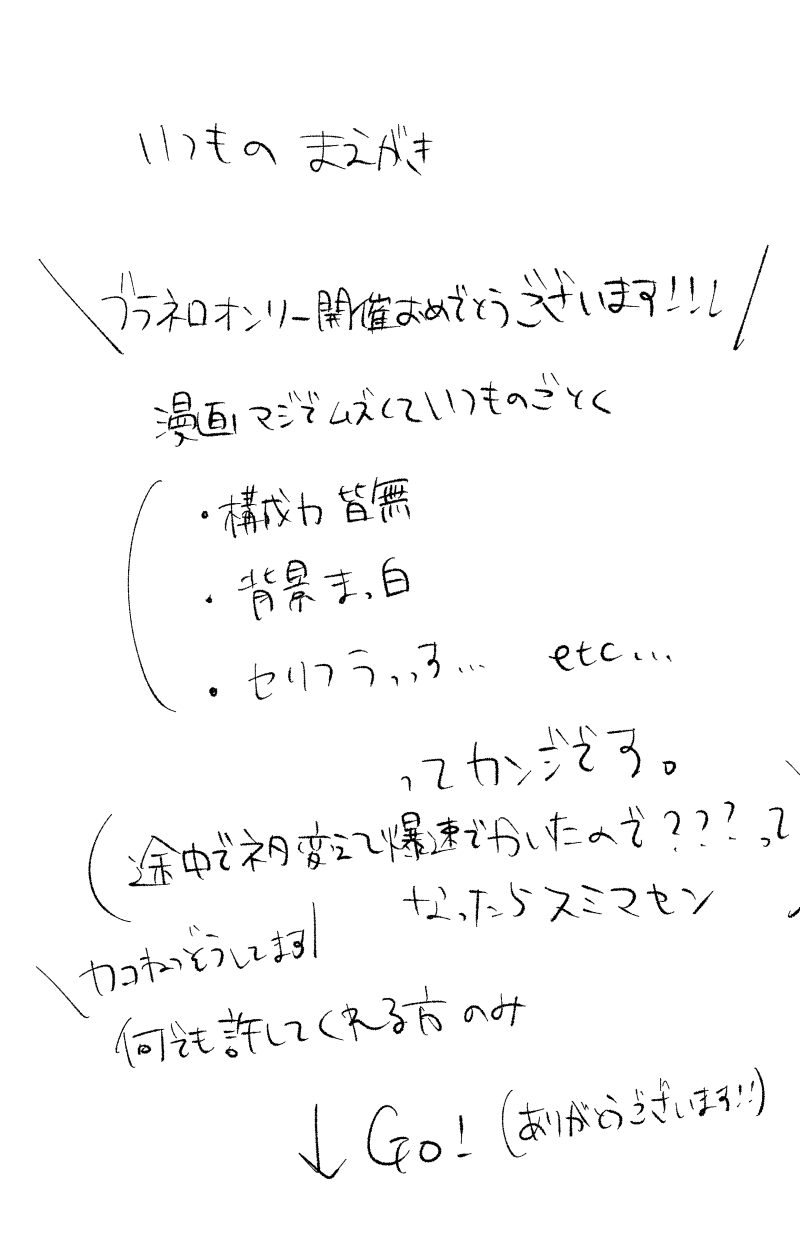 いつもの まえがき
ブラネロオンリー開催おめでとうございます!!!
漫画マジでムズくていつものごとく
・構成力 皆無
・背景まっ白
・セリフラッフ… etc…
ってカンジです。
途中でネタ変えて爆速でかいたので???って
なったらスミマセン
カコねつぞうしてます
何でも許してくれる方のみ
↓ Go! (ありがとうございます!!)